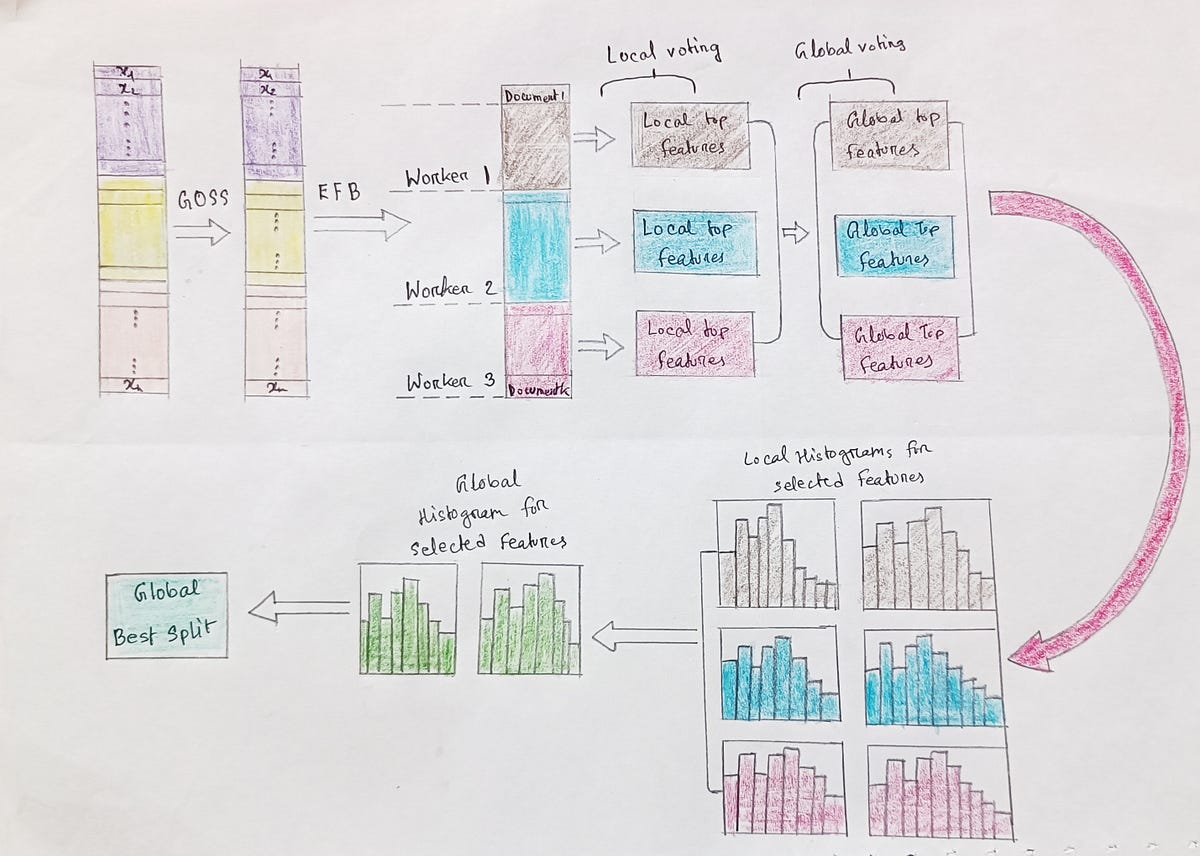 x1
x2
xn
GOSS
x1
x2
xn
EFB
Worker 1
Worker 2
Worker 3
Document 1
Document k
Local voting
Local top
features
Local top
features
Local top
features
Global voting
Global top
features
Global Top
features
Global Top
features
Local Histograms for
selected features
Global
Histogram for
selected features
Global
Best Split